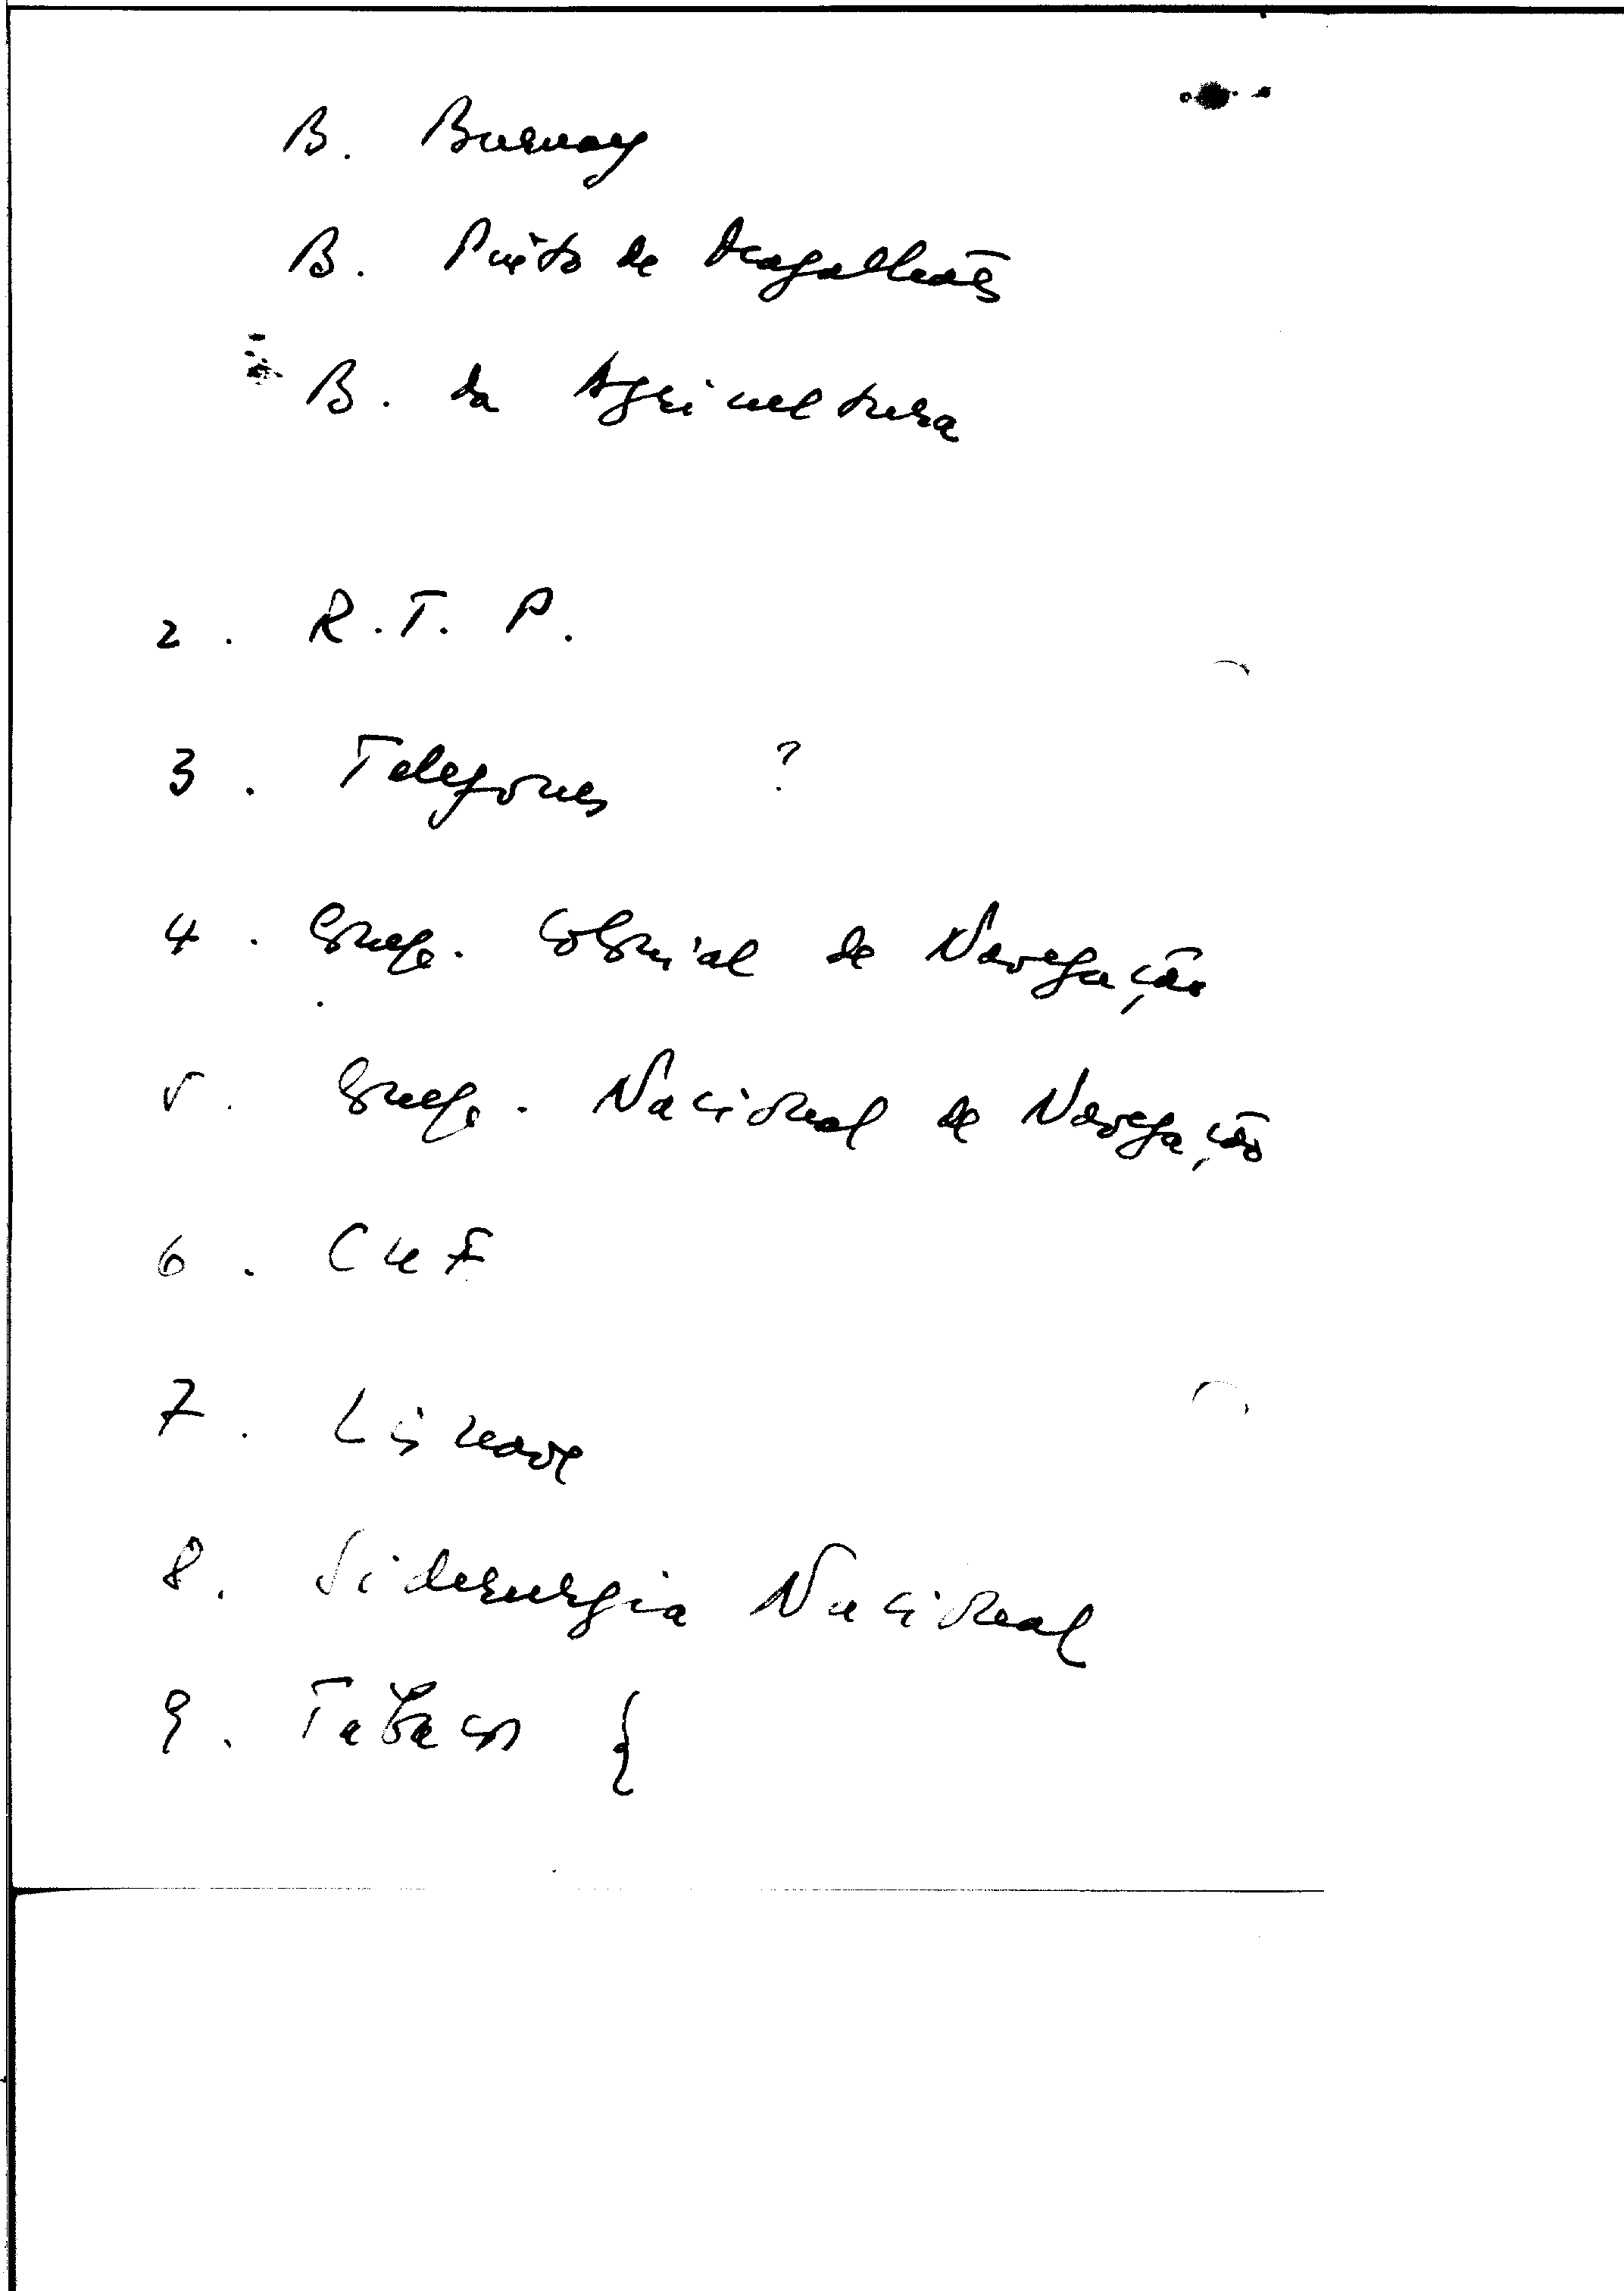 B. Burnay
B. Pinto de Magalhães
B. da Agricultura
2. R.T.P.
3. Telefones ?
4. Comp. Colonial de Navegação
5. Comp. Nacional de Navegação
6. CUF
7. Lisnave
8. Siderurgia Nacional
9. Tabacos {